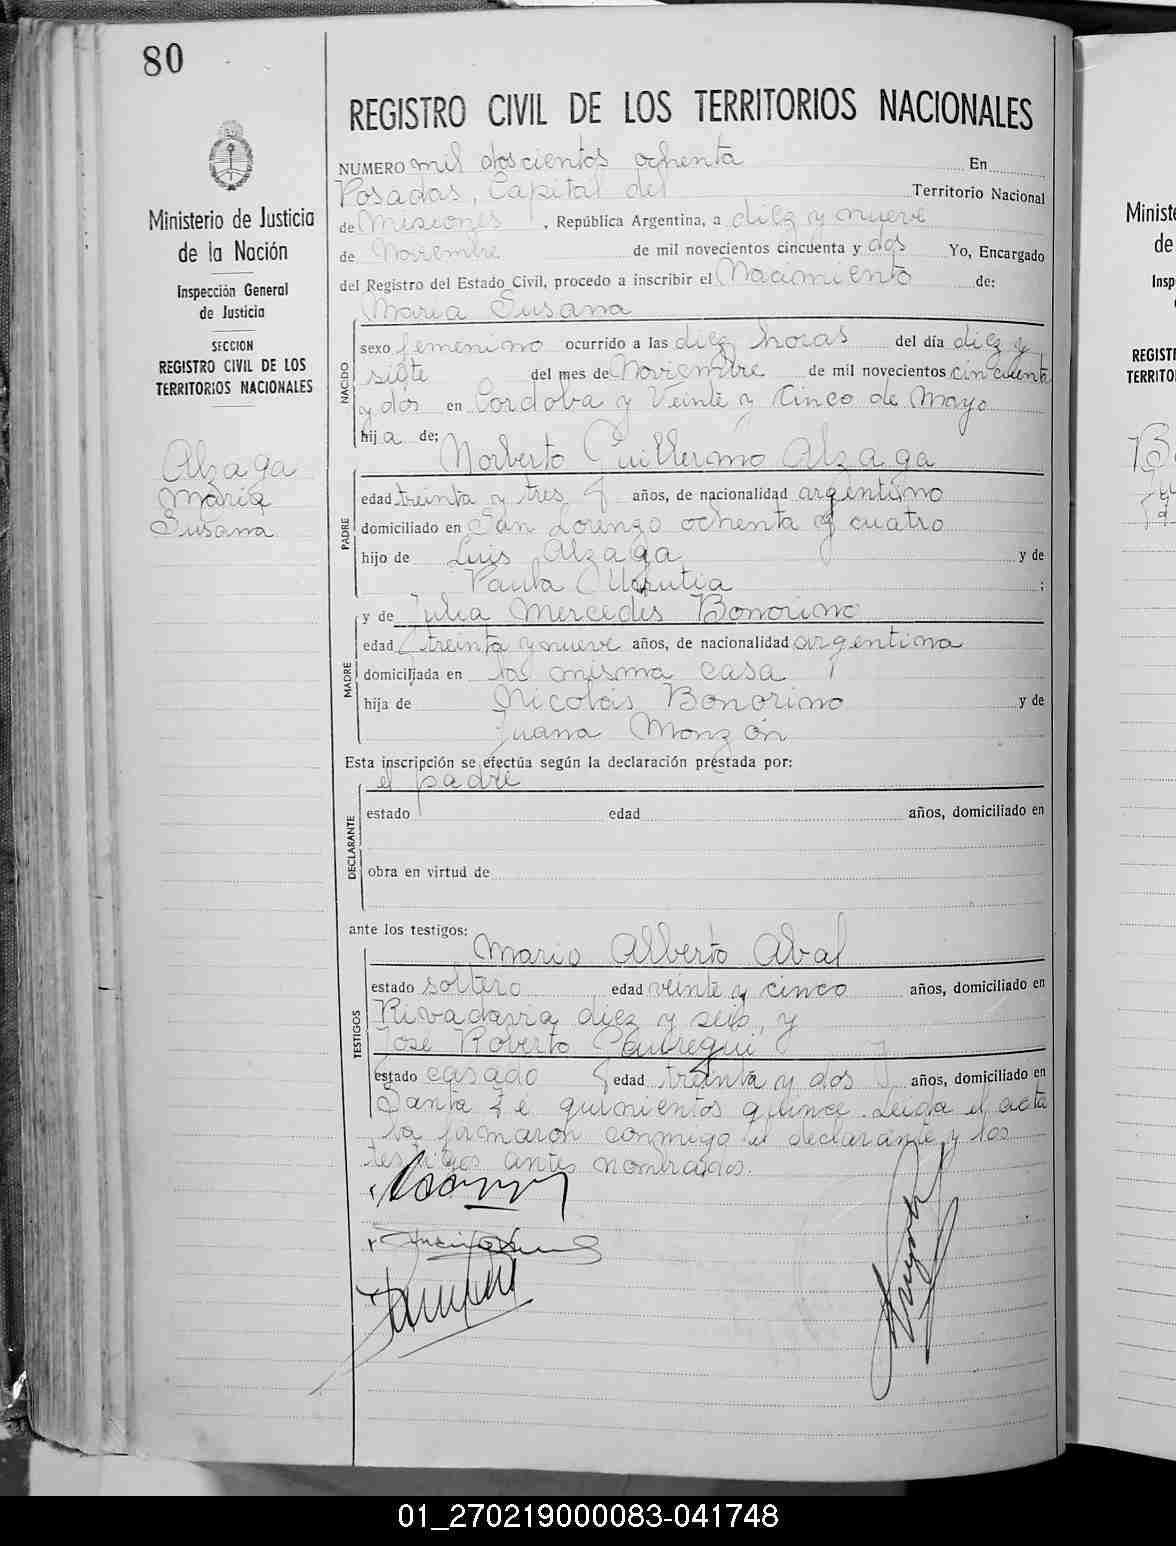 80
REGISTRO CIVIL DE LOS TERRITORIOS NACIONALES
Ministerio de Justicia
de la Nación
Inspección General
de Justicia
SECCION
REGISTRO CIVIL DE LOS
TERRITORIOS NACIONALES
Alzaga
Maria
Susana
NUMERO mil doscientos ochenta En
Posadas, Capital del Territorio Nacional
de Misiones, República Argentina, a diez y nueve
de Noviembre de mil novecientos cincuenta y dos Yo, Encargado
del Registro del Estado Civil, procedo a inscribir el Nacimiento de:
Maria Susana
NACIDO
sexo femenino ocurrido a las diez horas del día diez y
siete del mes de Noviembre de mil novecientos cincuenta
y dos en Cordoba y Veinte y Cinco de Mayo
hija de:
Norberto Guillermo Alzaga
PADRE
edad treinta y tres años, de nacionalidad argentino
domiciliado en San Lorenzo ochenta y cuatro
hijo de Luis Alzaga y de
Paula ;
y de Julia Mercedes Bonorino
MADRE
edad treinta y nueve años, de nacionalidad argentina
domiciliada en la misma casa
hija de Nicolás Bonorino y de
Juana Monzón
Esta inscripción se efectúa según la declaración prestada por:
el padre
DECLARANTE
estado edad años, domiciliado en
obra en virtud de
ante los testigos:
Mario Alberto Abal
TESTIGOS
estado soltero edad veinte y cinco años, domiciliado en
Rivadavia diez y seis, y
José Roberto
estado casado edad treinta y dos años, domiciliado en
Santa Fé quinientos quince. Leida el acta
la firmaron conmigo el declarante y los
testigos antes nombrados.
Ministe
de
Insp
REGISTI
TERRITO
01_270219000083-041748